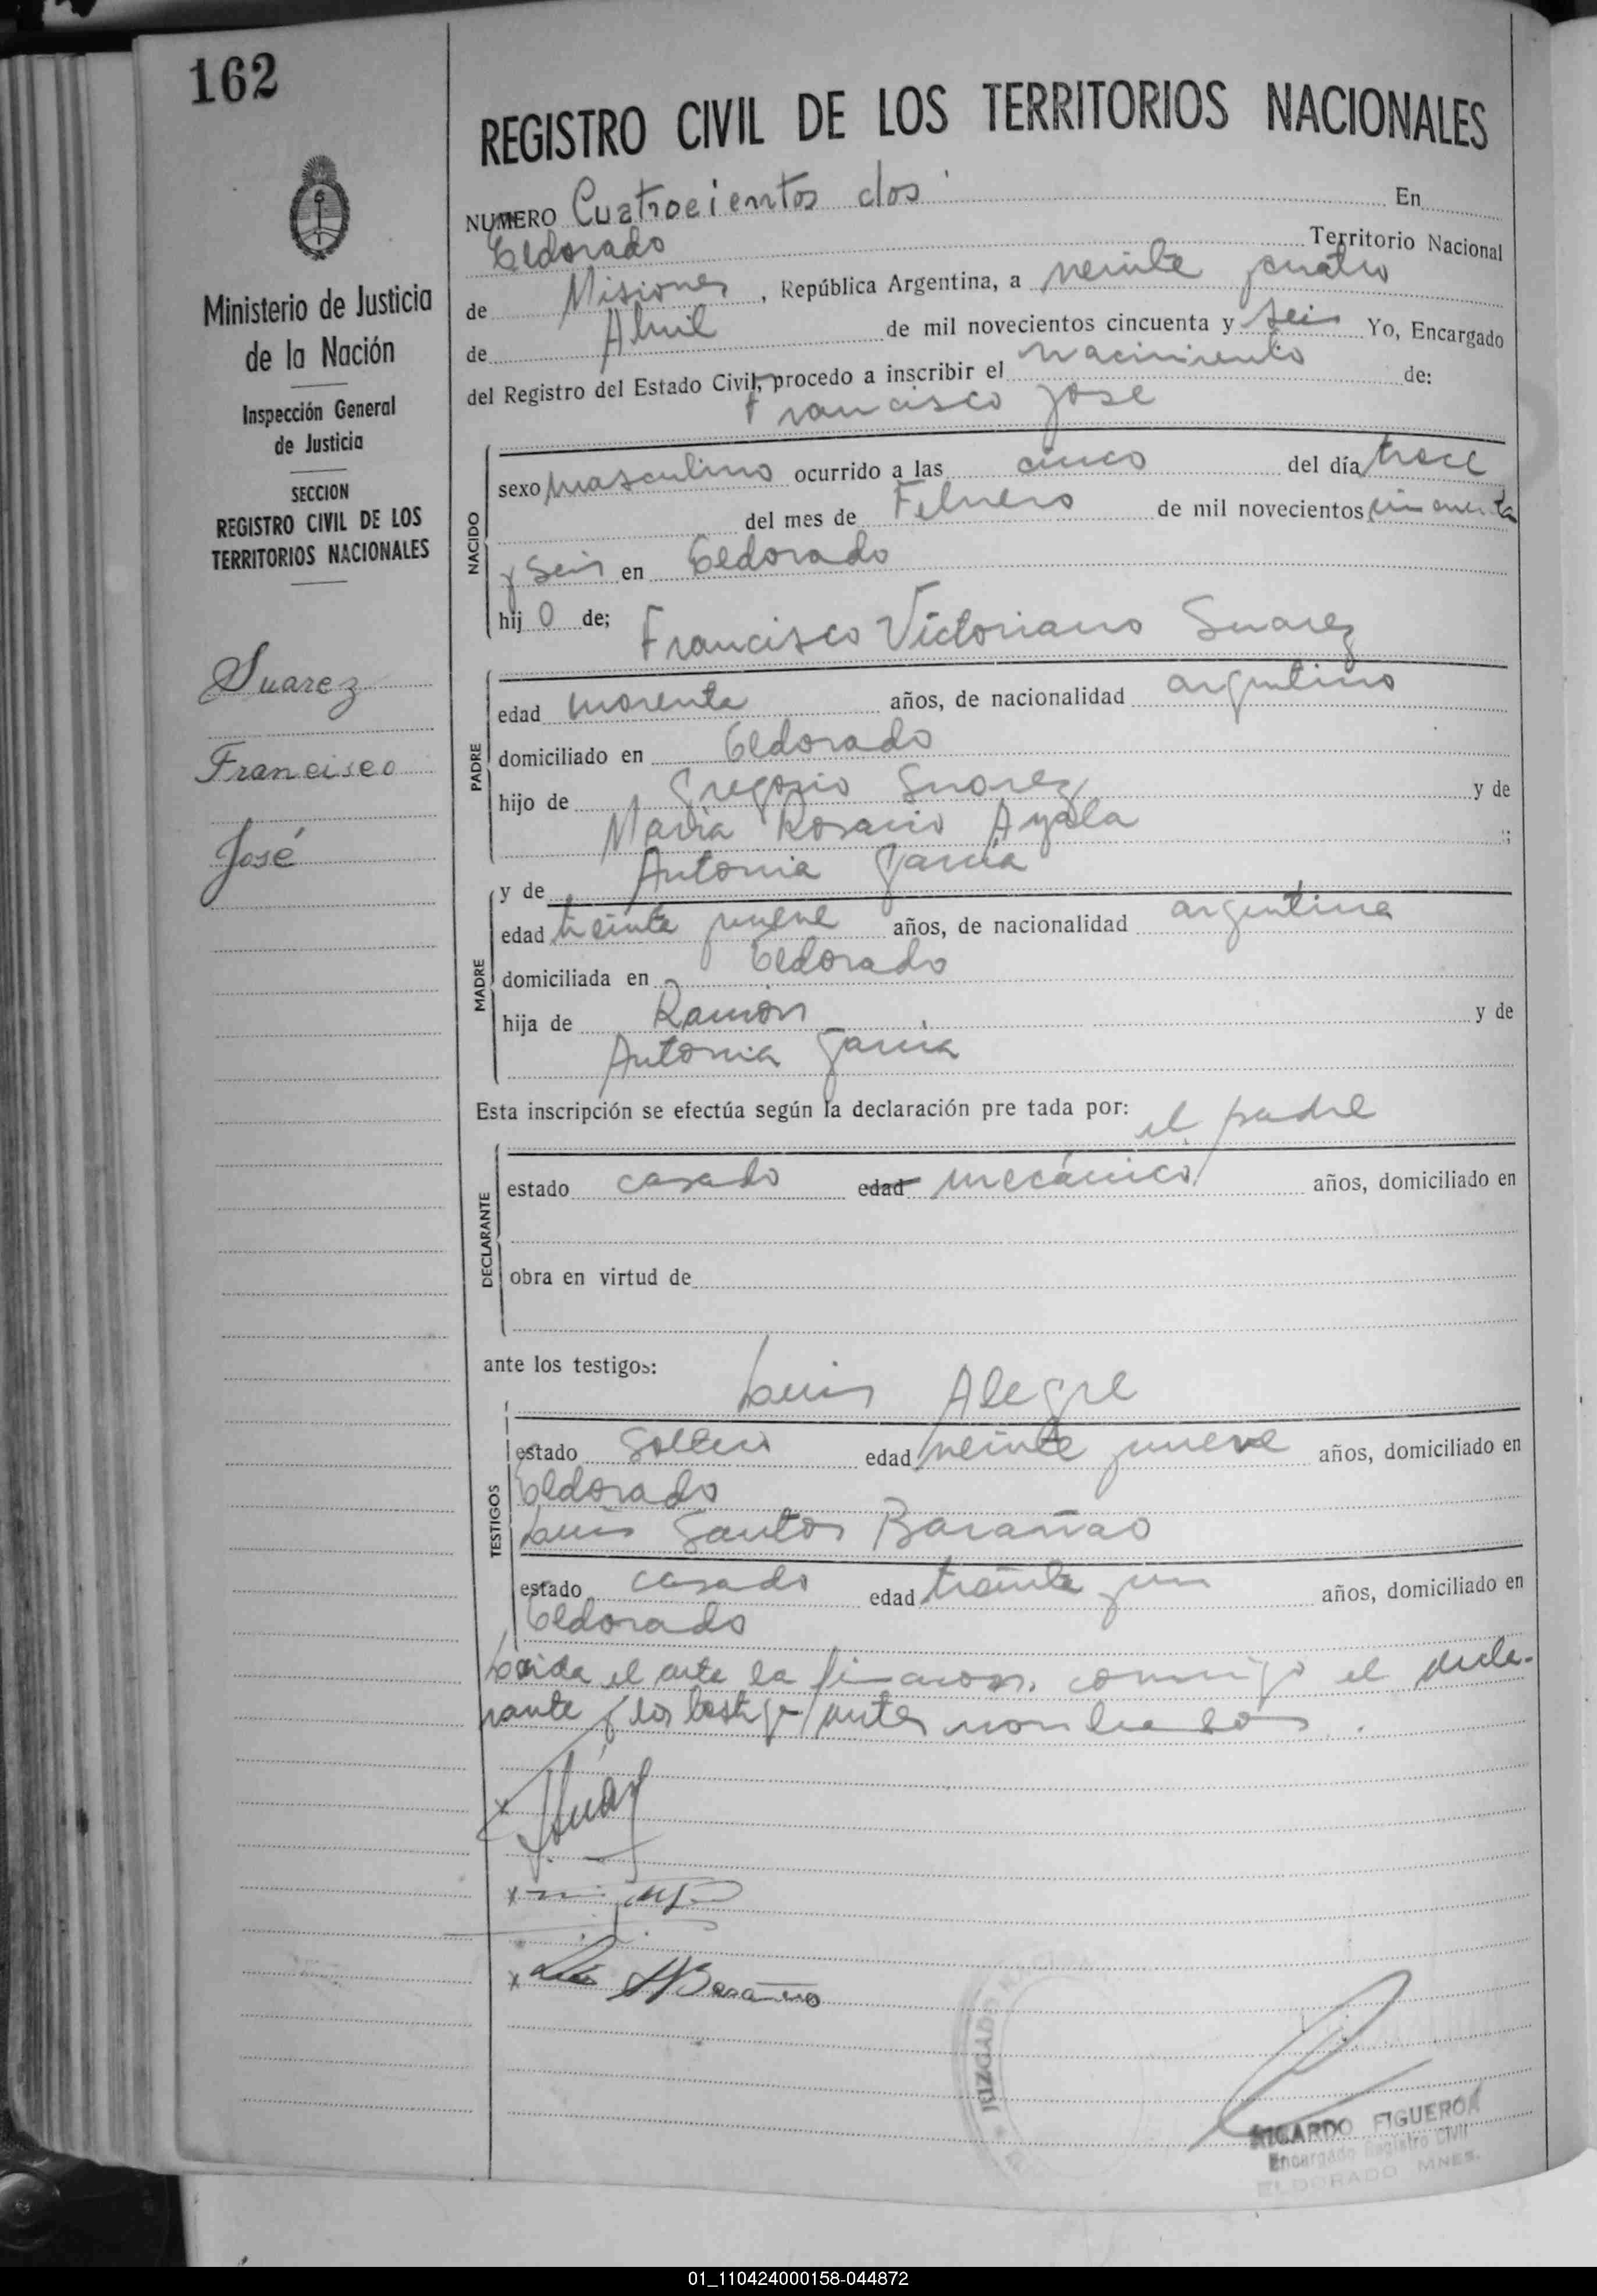 162
REGISTRO CIVIL DE LOS TERRITORIOS NACIONALES
NUMERO Cuatrocientos dos En
Eldorado Territorio Nacional
de Misiones, República Argentina, a veinte cuatro
de Abril de mil novecientos cincuenta y seis Yo, Encargado
del Registro del Estado Civil, procedo a inscribir el nacimiento de:
Francisco José
Ministerio de Justicia
de la Nación
Inspección General
de Justicia
SECCION
REGISTRO CIVIL DE LOS
TERRITORIOS NACIONALES
Suarez
Francisco
José
NACIDO
sexo masculino ocurrido a las cinco del día trece
del mes de Febrero de mil novecientos cincuenta
y seis en Eldorado
hij o de; Francisco Victoriano Suarez
PADRE
edad años, de nacionalidad argentino
domiciliado en Eldorado
hijo de Gregorio Suarez y de
Maria Rosario Ayala ;
y de Antonia García
MADRE
edad treinta nueve años, de nacionalidad argentina
domiciliada en Eldorado
hija de Ramón y de
Antonia García
Esta inscripción se efectúa según la declaración pre tada por: el padre
DECLARANTE
estado casado edad mecánico años, domiciliado en
obra en virtud de
ante los testigos: Luis Alegre
TESTIGOS
estado soltero edad veinte nueve años, domiciliado en
Eldorado
Luis Santos Barañao
estado casado edad treinta un años, domiciliado en
Eldorado
Leida el acta la firmaron conmigo el decla-
rante y los testigos antes nombrados.
JUZGADO
RICARDO FIGUEROA
Encargado Registro Civil
ELDORADO MNES.
01_110424000158-044872